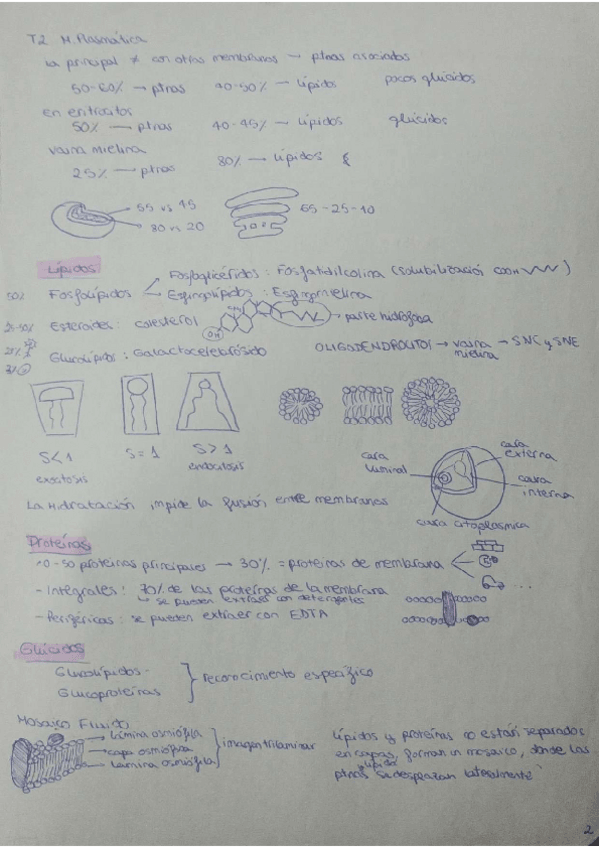 T2 M. Plasmática
La principal ≠ con otras membranas → ptnas asociadas
50-60% → ptnas 40-50% — Lípidos pocos glúcidos
en eritrocitos
50% — ptnas 40-45% — Lípidos glúcidos
vaina mielina
25% — ptnas 80% — Lípidos
55 vs 45
80 vs 20
65-25-10
Lípidos
50% Fosfolípidos
Fosfoglicéridos: Fosfatidilcolina (solubilizació COOH)
Esfingolípidos: Esfingomielina
Esteroides: colesterol OH parte hidrófoba
Glucolípidos: Galactocerebrósido
OLIGODENDROCITOS → vaina mielina → SNC y SNE
S<1 S=1 S>1
exocitosis endocitosis
cara luminal
cara externa
cara interna
cara citoplasmica
La Hidratación impide la fusión entre membranas
Proteínas
-50 proteínas principales → 30% = proteínas de membrana
- Integrales: 70% de las proteínas de la membrana
se pueden extraer con detergentes
- Periféricas: se pueden extraer con EDTA
Glúcidos
Glucolípidos
Glucoproteínas
reconocimiento específico
Mosaico Fluido
lámina osmiófila
capa osmiófila
Lámina osmiófila
imagen trilaminar
Lípidos y proteínas no están separados
en capas, forman un mosaico, donde las
ptnas y lípidos se desplazan lateralmente
2